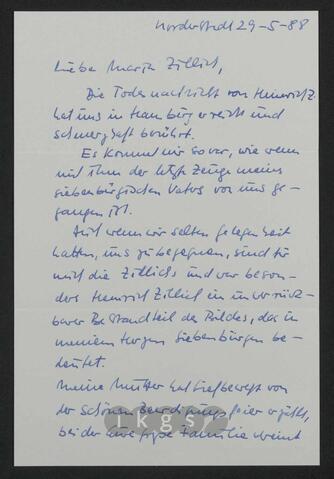 Norderstedt 29-5-88
Liebe Maria Zillich,
Die Todesnachricht von Heinrich Z.
hat uns in Hamburg erreicht und
schmerzhaft berührt.
Es kommt mir so vor, wie wenn
mit ihm der letzte Zeuge meines
siebenbürgischen Vaters von uns ge-
gangen ist.
Auch wenn wir selten Gelegenheit
hatten, uns zu begegnen, sind für
mich die Zillichs und war beson-
ders Heinrich Zillich ein unverrück-
barer Bestandteil des Bildes, das in
meinem Herzen Siebenbürgen be-
deutet.
Meine Mutter hat tiefbewegt von
der schönen Beerdigungsfeier erzählt,
bei der Eure große Familie vereint
ikgs